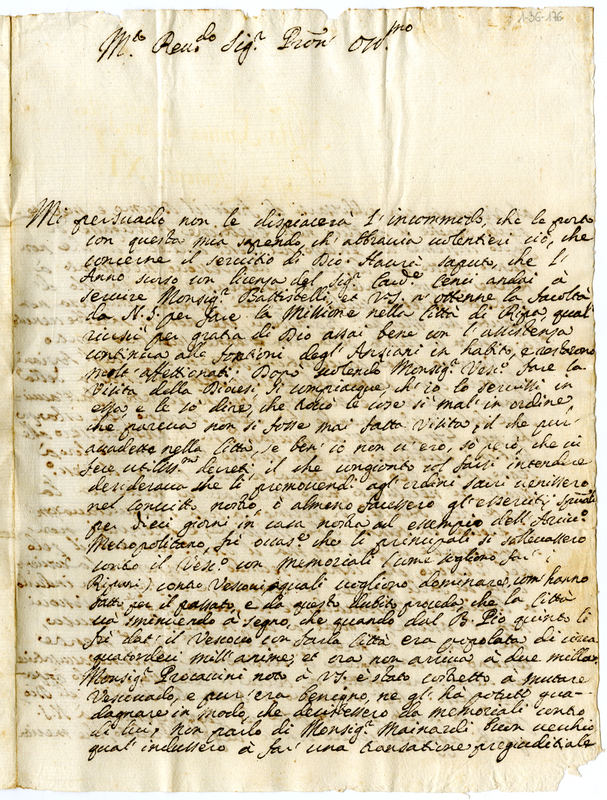 1-36-176
M.to Reu.do Sig.r Pron Oss.mo
Mi persuado non le dispiacerà l'incommodo, che le porto
con questa mia sapendo, ch'abbraccia uolentieri ciò, che
concerne il seruitio di Dio. Haurà saputo, che l'
Anno scorso con licenza del Sig.r Card.e Cenci andai à
seruire Monsig.r Battistelli, et VS. n'ottenne la facoltà
da N.S. per fare la Missione nella Città di Ripa, qual
riuscì per gratia di Dio assai bene con l'assistenza
continua alle fontioni degl'Anziani in habito, e restorono
molt'affettionati. Dopo uolendo Monsig.r Vesc.o fare la
Visita della Diocesi, si compiacque ch'io lo seruissi in
essa, e le so' dire, che trouò le cose sì mal'in ordine,
che pareua non si fosse mai fatta Visita, il che pur'
accadette nella Città, se ben'io non u'ero, so però, che ui
fece utiliss.mi decreti, il che congionto col farsi intendere
desideraua che li promouendi agl'ordini sacri uenissero
nel conuitto nostro, ò almeno facessero gl'essercitij sp[irit]uali
per dieci giorni in casa nostra ad essempio dell'Arciu.o
Metropolitano, fù occas.e che li principali si solleuassero
contro il Vesc.o con memoriali (come sogliono far' i
Ripani) contro Vescoui, quali uogliono dominare, com'hanno
fatto per il passato, e da questo dubito proceda, che la Città
uà sminuendo à segno, che quando dal B. Pio quinto li
fù dat' il Vescouo con farla Città era popolata di circa
quatordeci mill'anime, et ora non arriua à due milla.
Monsig.r Procaccini noto à VS. è stato costretto à mutare
Vescouado, e pur'era benigno, ne gl'hà potuti gua-
dagnare in modo, che desistessero da memoriali contro
di lui; Non parlo di Monsig.r Mainardi buon uecchio
qual'indussero à far' una transatione pregiuditiale